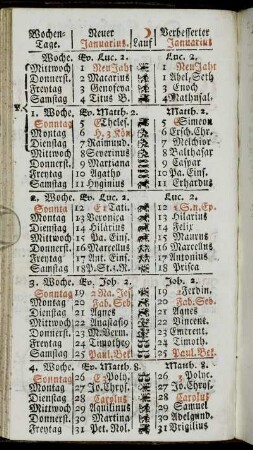 Wochen- Neuer Verbesserter
Tage. Januarius. Lauf Januarius
Woche. Ev. Luc. 2. Luc. 2.
Mittwoch 1 Neu Jahr 1 Neu Jahr
Donnerst. 2 Macarius 2 Abel, Seth
Freytag 3 Genofeva 3 Enoch
Samstag 4 Titus B. 4 Mathusal.
1. Woche. Ev. Matth. 2. Matth. 2.
Sonntag 5 Thelef. 5 Simeon
Montag 6 H. 3 Kön. 6 Ersch. Chr.
Dienstag 7 Raimund. 7 Melchior
Mittwoch 8 Severinus 8 Balthasar
Donnerst. 9 Martiana 9 Caspar
Freytag 10 Agatho 10 Pa. Eins.
Samstag 11 Hyginius 11 Erhardus
2. Woche. Ev. Luc. 2. Luc. 2.
Sonntag 12 Tati. 12 S.n. Ep.
Montag 13 Veronica 13 Hilarius
Dienstag 14 Hilarius 14 Felix
Mittwoch 15 Pa. Eins. 15 Maurus
Donnerst. 16 Marcellus 16 Marcellus
Freytag 17 Ant. Eins. 17 Antonius
Samstag 18 P. St. z. R. 18 Prisca
3. Woche. Ev. Joh. 2. Joh. 2.
Sonntag 19 2 Na. Jes. 19 Ferdin.
Montag 20 Fab. Seb. 20 Fab. Seb.
Dienstag 21 Agnes 21 Agnes
Mittwoch 22 Anastasi 22 Vincent.
Donnerst. 23 M. Verm. 23 Emerent.
Freytag 24 Timotheo 24 Timoth.
Samstag 25 Paul. Bek. 25 Paul. Bek.
4. Woche. Ev. Matth. 8. Matth. 8.
Sonntag 26 Poly. 26 Polyc.
Montag 27 Jo. Chrys. 27 Jo. Chrys.
Dienstag 28 Carolus 28 Carolus
Mittwoch 29 Aquilinus 29 Samuel
Donnerst. 30 Martina 30 Adelgund.
Freytag 31 Pet. Nol. 31 Virgilius